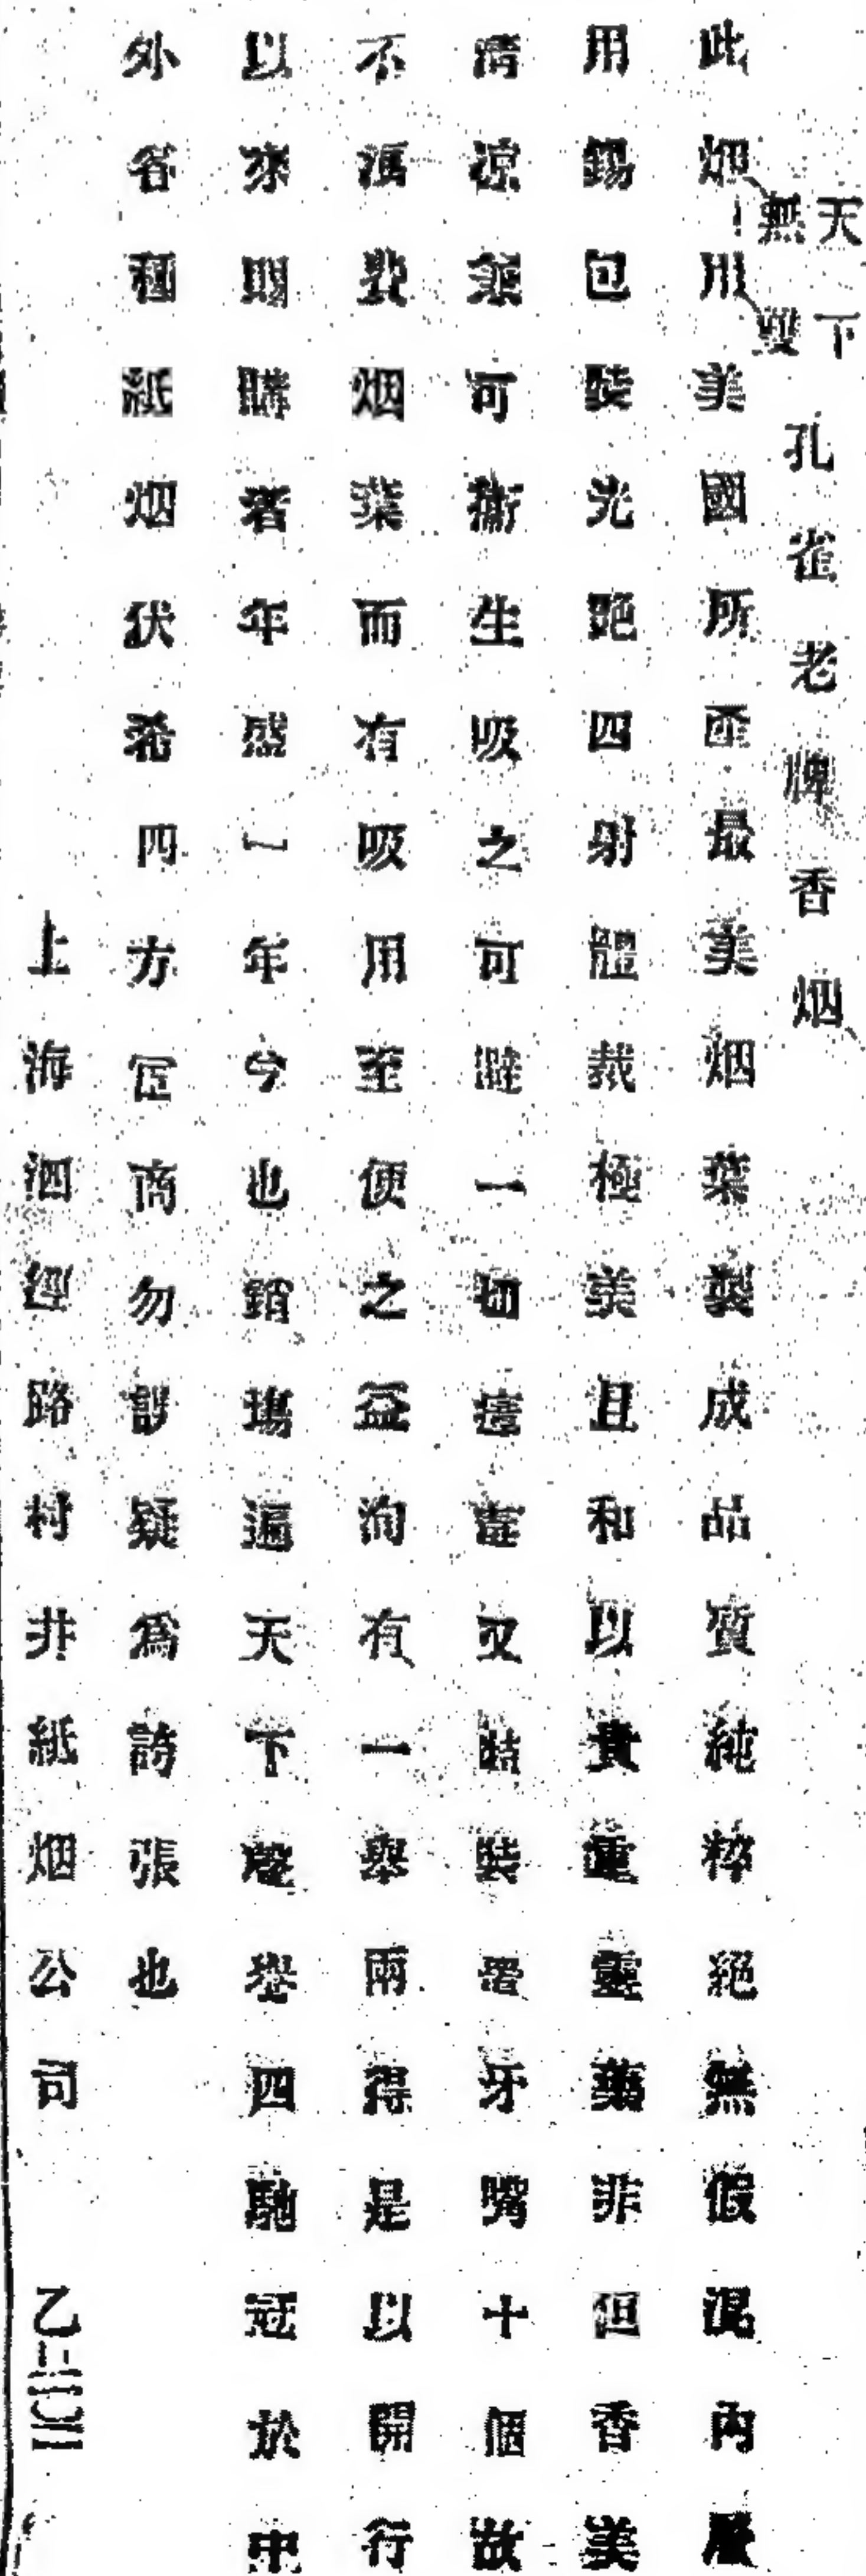 天下無雙孔雀老牌香烟
此烟用美國所產最美烟葉製成品質純粹絕無假混內層
用錫包裝光艷四射體裁極美且和以貴重靈藥非但香美
清凉兼可衛生吸之可避一切瘴毒又時裝習牙嘴十個故
不濫費烟葉而有吸用至便之益洵有一舉兩得是以開行
以來賜購者年盛一年今也銷塲遍天下聲譽四馳冠於中
外省種紙烟伏希四方宦商勿誤疑為誇張也
上海泗經路村井紙烟公司
乙